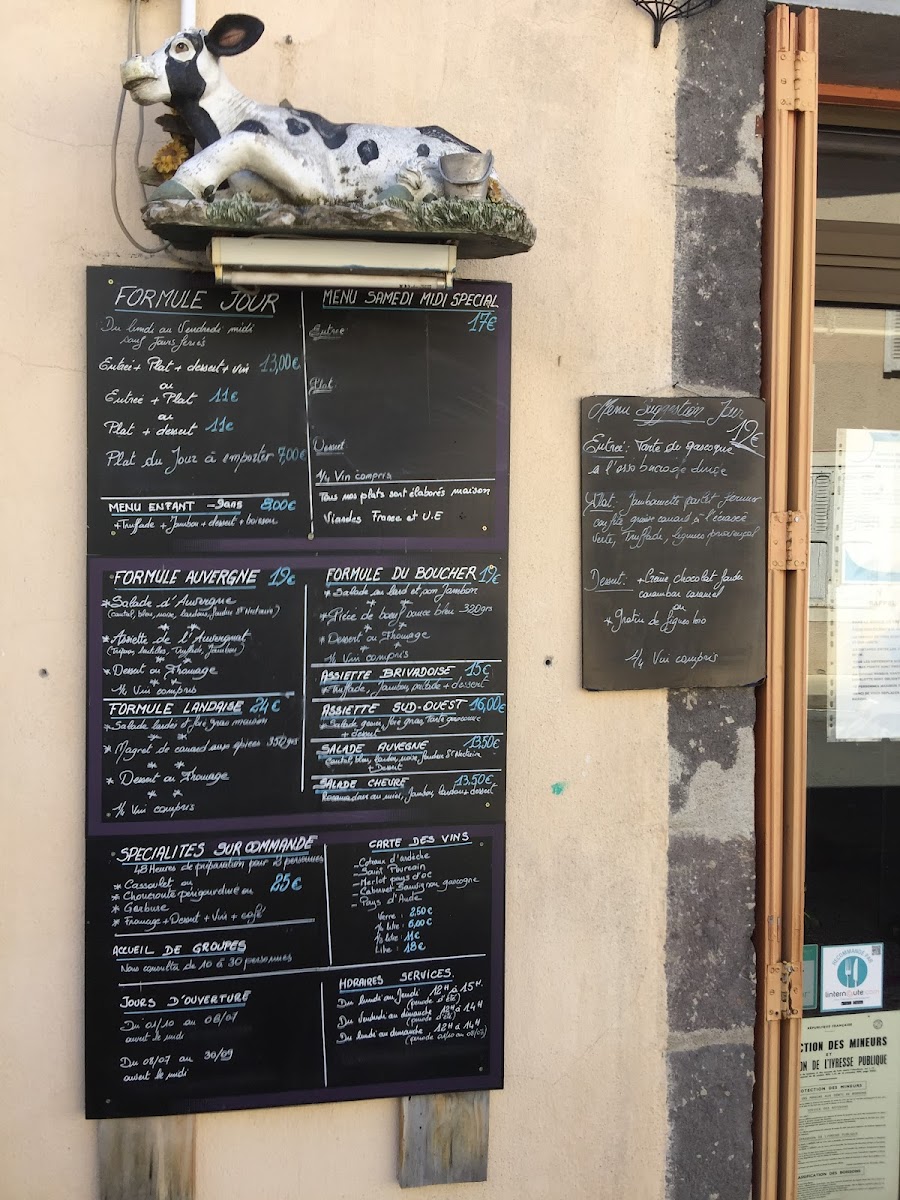 FORMULE JOUR
Du lundi au Vendredi midi
sauf Jours feriés
Entrée + Plat + dessert + vin 13,00€
ou
Entrée + Plat 11€
ou
Plat + dessert 11€
Plat du Jour à emporter 7,00€
MENU ENFANT -9ans 8,00€
+Truffade + Jambon + dessert + boisson
MENU SAMEDI MIDI SPECIAL
17€
Entrée:
Plat:
Dessert:
1/4 Vin compris
Tous nos plats sont élaborés maison
Viandes France et U.E
FORMULE AUVERGNE 19€
* Salade d'Auvergne
(cantal, bleu, noix, lardons, Jambon St Nectaire)
* Assiette de l'Auvergnat
(Tripoux, lentilles, Truffade, Jambon)
* Dessert ou Fromage
1/4 Vin compris
FORMULE LANDAISE 24€
* Salade landes et foie gras maison
* Magret de canard aux épices 350grs
* Dessert ou Fromage
1/4 Vin compris
FORMULE DU BOUCHER 19€
* Salade au lard et son Jambon
* Pièce de boeuf sauce bleu - 320grs
* Dessert ou Fromage
1/4 Vin compris
ASSIETTE BRIVADOISE 15€
* Truffade, Jambon, salade + dessert
ASSIETTE SUD-OUEST 16,00€
* Salade gesier, foie gras, Tarte gasconne
+ dessert
SALADE AUVEGNE 13,50€
Cantal, bleu, lardon, noix, Jambon St Nectaire
+ Dessert
SALADE CHEVRE 13,50€
au miel, Jambon, lardons + dessert
SPECIALITES SUR COMMANDE
48 Heures de préparation pour 2 personnes
* Cassoulet ou 25€
* Choucroute périgourdine ou
* Garbure
* Fromage + Dessert + Vin + café
ACCUEIL DE GROUPES
Nous consulter de 10 à 30 personnes
JOURS D'OUVERTURE
Du 01/10 au 06/07
ouvert le midi
Du 08/07 au 30/09
ouvert le midi
CARTE DES VINS
- Coteaux d'ardèche
- Saint Pourcain
- Merlot pays d'oc
- Cabernet Sauvignon gascogne
- Pays d'Aude
Verre : 2,50€
1/4 litre : 6,00€
1/2 litre : 11€
Litre : 18€
HORAIRES SERVICES.
Du lundi au Jeudi 12H à 15H.
(periode d'été)
Du Vendredi au dimanche 12H à 14H
(periode d'été)
Du lundi au dimanche 12H à 14H
(periode 01/10 au 06/07)
Menu Suggestion Jour
19€
Entrée: Tarte du gascogne
Plat: Jambonnette poulet fermier
confite graisse canard à l'échalote
verte, Truffade, legumes provençal
Dessert: + Crème chocolat Jardin
carambar caramel
ou
* Gratin de figues bio
1/4 Vin compris
RECOMMANDÉ PAR
linternaute
RÉPUBLIQUE FRANÇAISE
CTION DES MINEURS
ET
ON DE L'IVRESSE PUBLIQUE
PROTECTION DES MINEURS